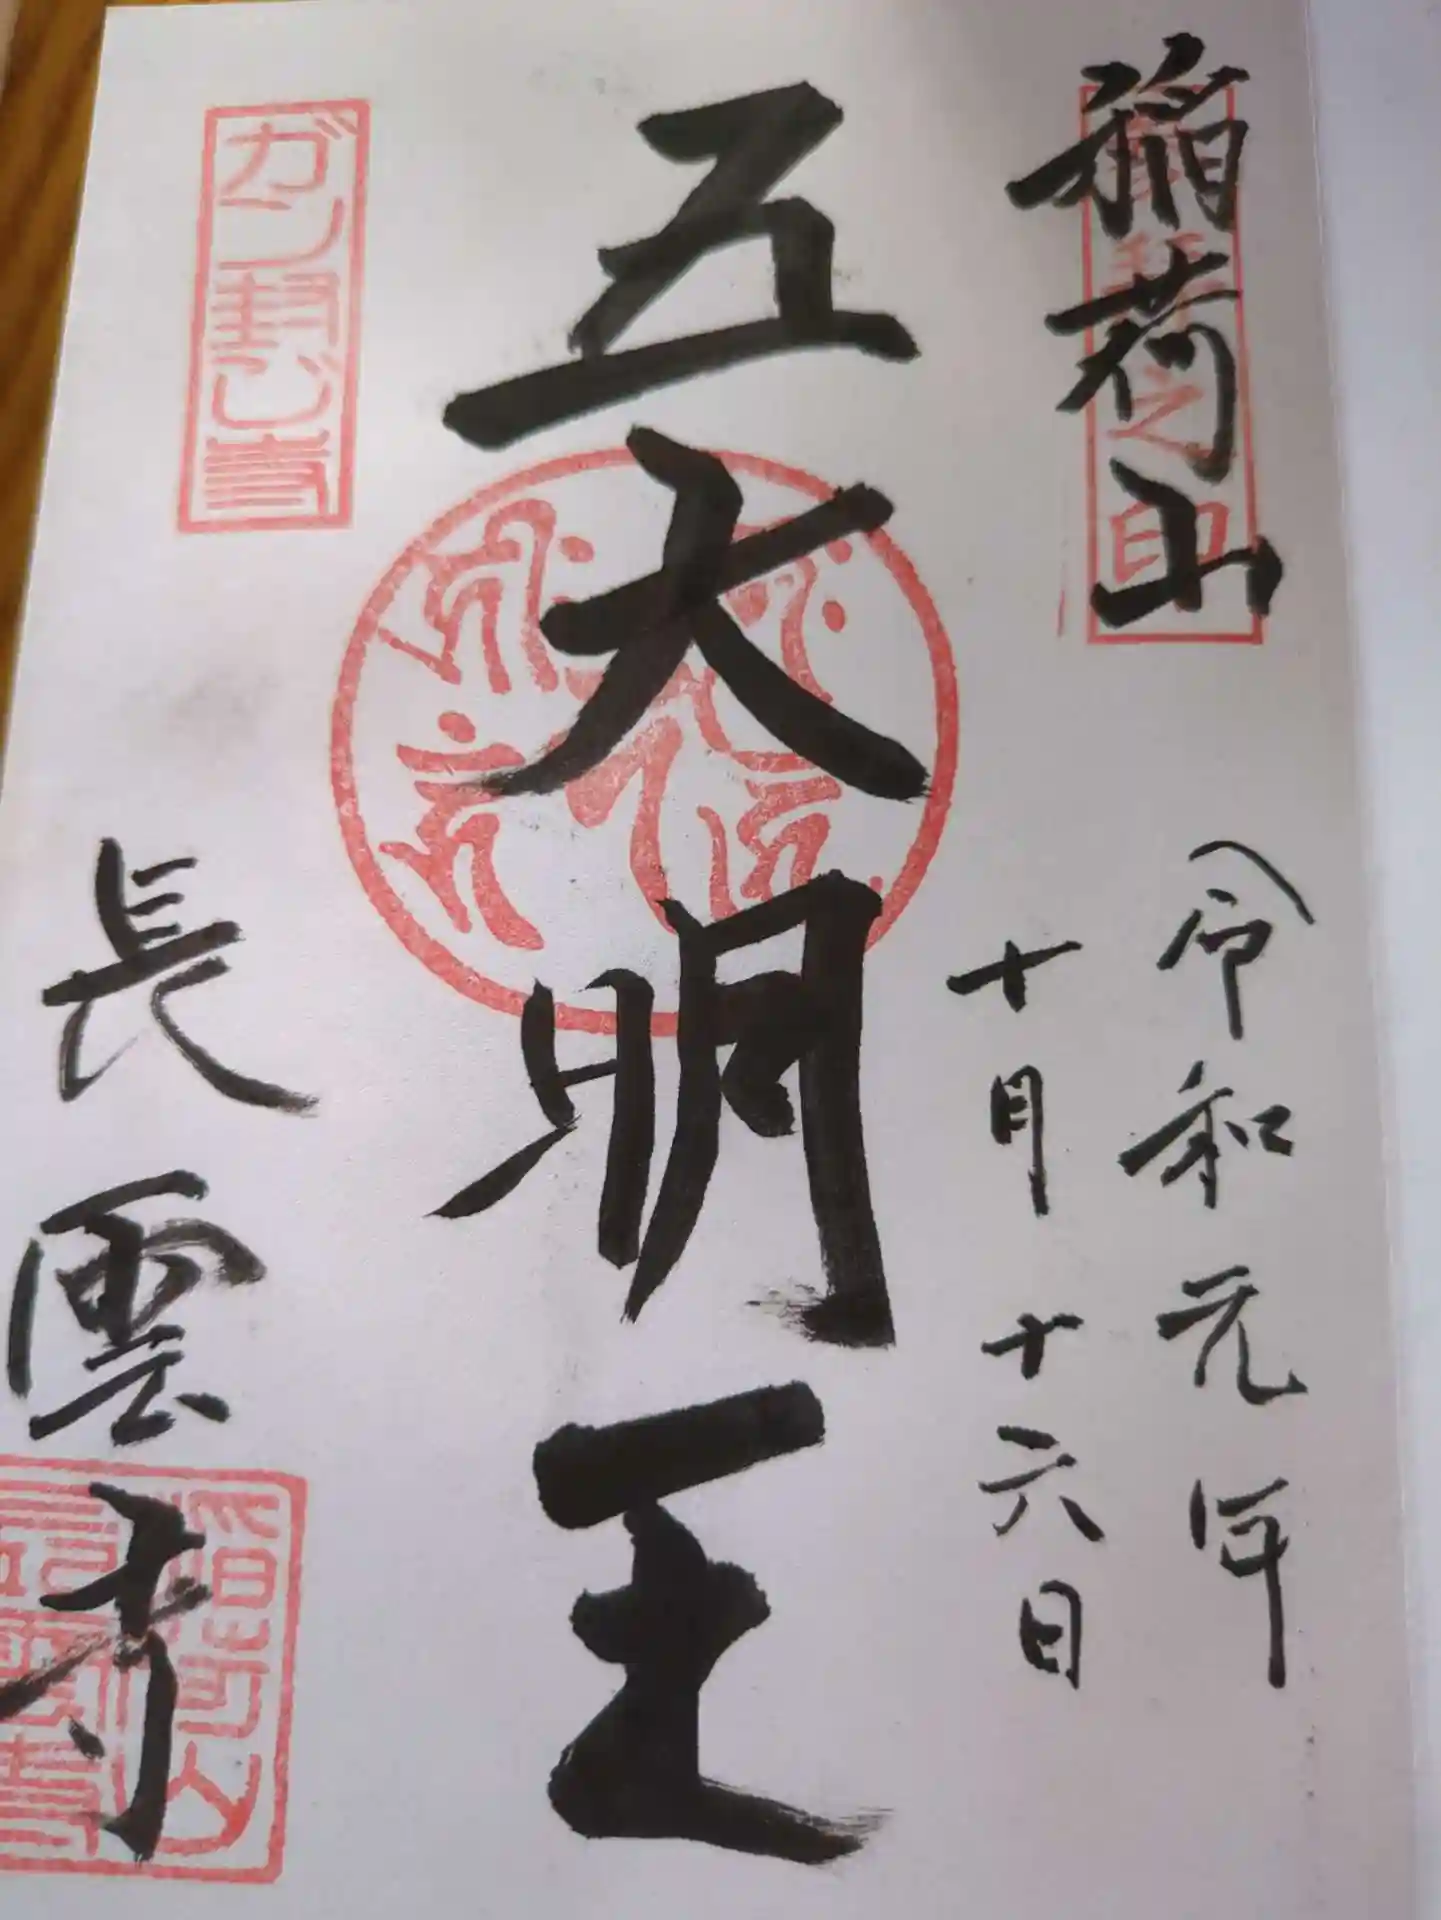 稲荷山
令和元年
十月十六日
五大明王
ガン封じ寺
長雲寺
稲荷山
長雲寺